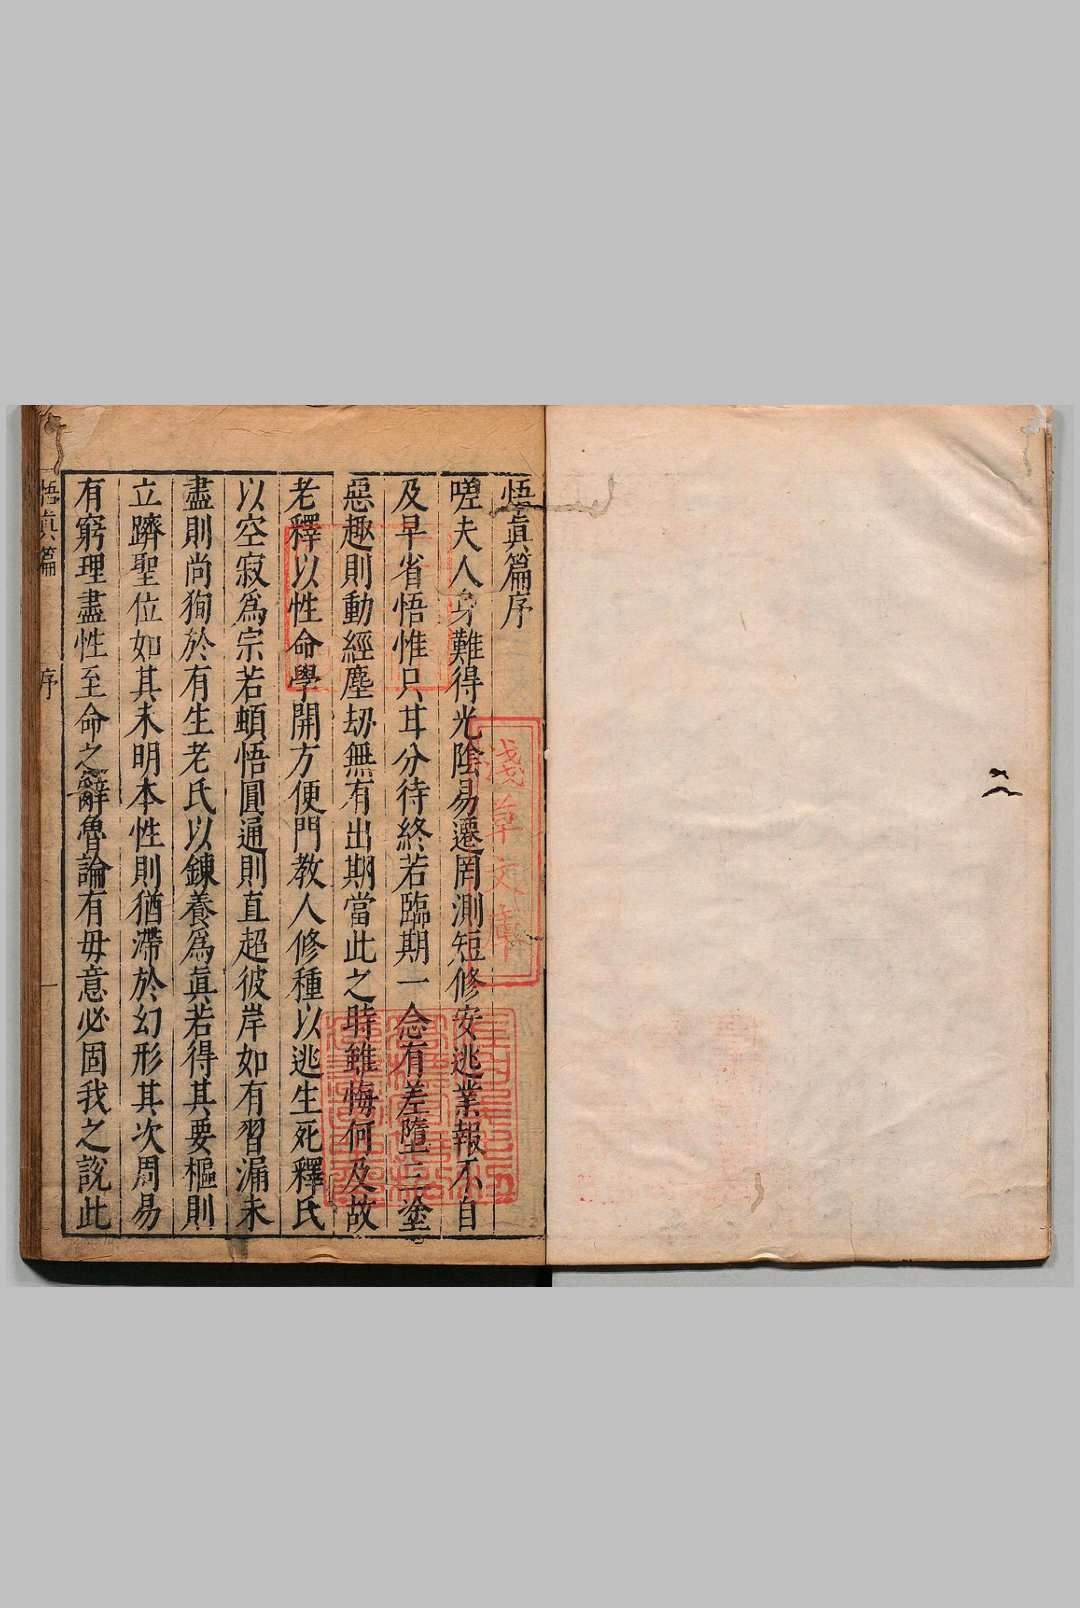 悟眞篇序
嗟夫人身難得光陰易遷罔測短修安逃業報不自
及早省悟惟只甘分待終若臨期一念有差墮三塗
惡趣則動經塵劫無有出期當此之時雖悔何及故
老釋以性命學開方便門教人修種以逃生死釋氏
以空寂爲宗若頓悟圓通則直超彼岸如有習漏未
盡則尚狥於有生老氏以鍊養爲眞若得其要樞則
立躋聖位如其未明本性則猶滯於幻形其次周易
有窮理盡性至命之辭魯論有毋意必固我之說此
悟眞篇 序 一